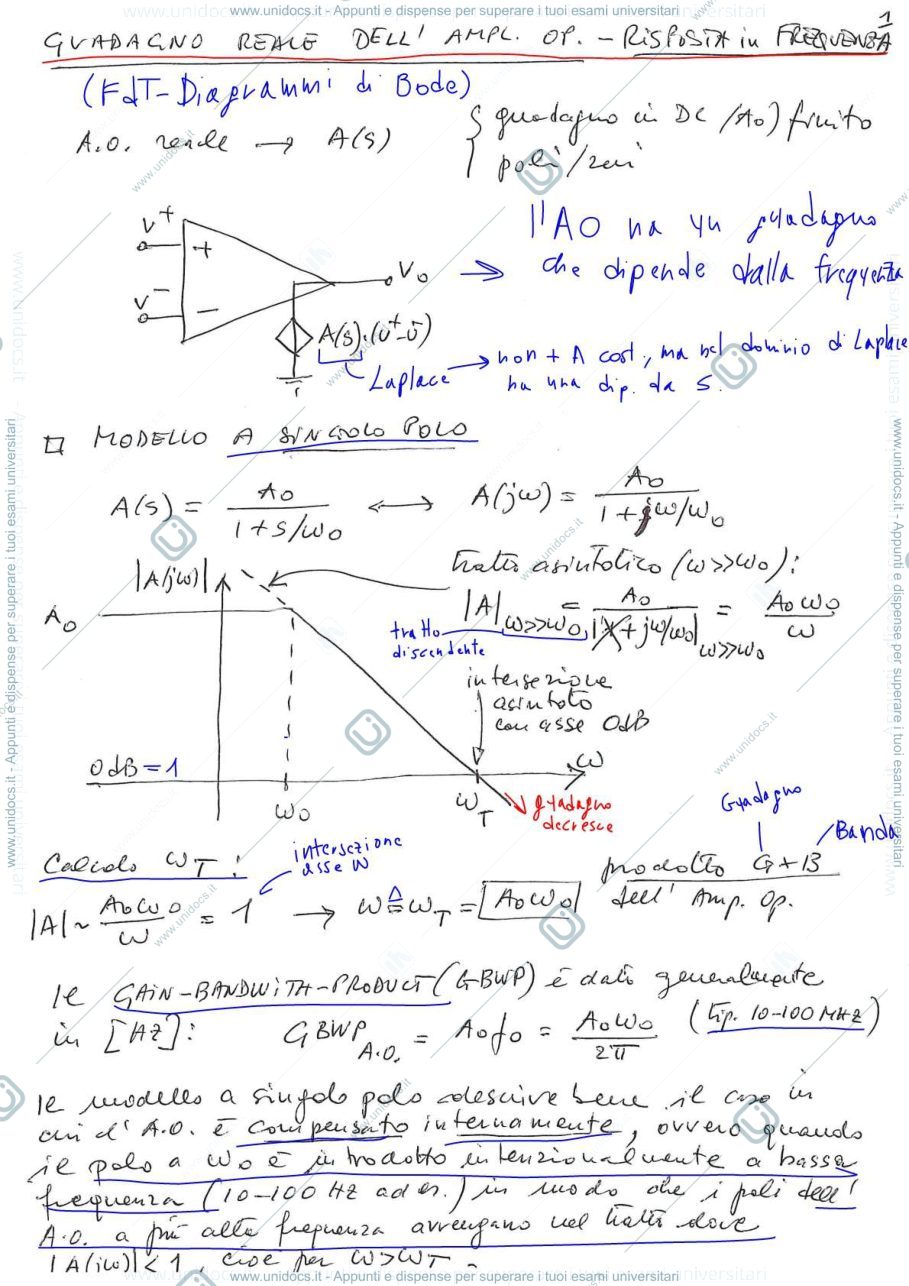 www.unidocs.it - Appunti e dispense per superare i tuoi esami universitari
1
GUADAGNO REALE DELL' AMPL. OP. - RISPOSTA in FREQUENZA
(FdT-Diagrammi di Bode)
A.O. reale → A(s) { guadagno in DC (A0) finito
poli/zeri
V+
+
V-
-
Vo
A(s)·(v+-v-)
l'AO ha un guadagno
⇒ che dipende dalla frequenza
Laplace → non + A cost, ma nel dominio di Laplace
ha una dip. da s.
□ MODELLO A SINGOLO POLO
A(s) = A0 / (1+s/ω0) ⟷ A(jω) = A0 / (1+jω/ω0)
|A(jω)|
A0
tratto asintotico (ω>>ω0):
|A|ω>>ω0 = A0 / |1+jω/ω0| ω>>ω0 = A0ω0 / ω
tratto
discendente
intersezione
asintoto
con asse 0dB
0dB = 1
ω0
ωT
ω
guadagno
decresce
Guadagno
Banda
Calcolo ωT :
intersezione
asse ω
prodotto G+B
dell' Amp. Op.
|A| ~ A0ω0 / ω = 1 → ω ≜ ωT = A0ω0
Il GAIN-BANDWITH-PRODUCT (GBWP) è dato generalmente
in [HZ]: GBWP A.O. = A0f0 = A0ω0 / 2π (tip. 10-100 MHz)
Il modello a singolo polo descrive bene il caso in
cui l' A.O. è compensato internamente, ovvero quando
il polo a ω0 è introdotto intenzionalmente a bassa
frequenza (10-100 HZ ad es.) in modo che i poli dell'
A.O. a più alta frequenza avvengano nel tratto dove
|A(jω)| < 1, cioè per ω>ωT.
www.unidocs.it - Appunti e dispense per superare i tuoi esami universitari